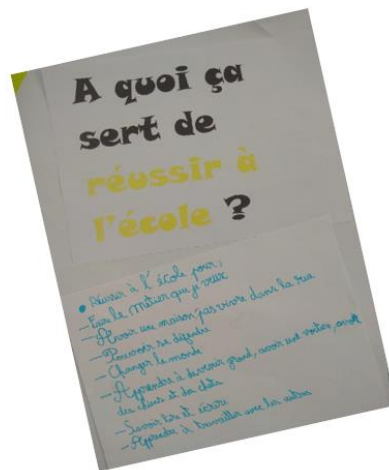 A quoi ça
sert de
réussir à
l'école ?
• Réussir à l'école pour :
– Faire le métier que je veux
– Avoir une maison, pas vivre dans la rue
– Pouvoir se défendre
– Changer le monde
– Apprendre à devenir grand, avoir une voiture, avoir
des chiens et des chats
– Savoir lire et écrire
– Apprendre à travailler avec les autres